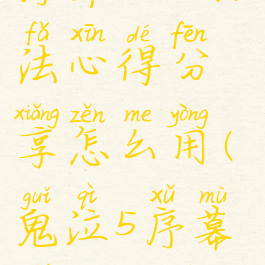 fǎ xīn dé fēn
法心得分
xiǎng zěn me yòng
享怎么用(
guǐ qì xǔ mù
鬼泣5序幕